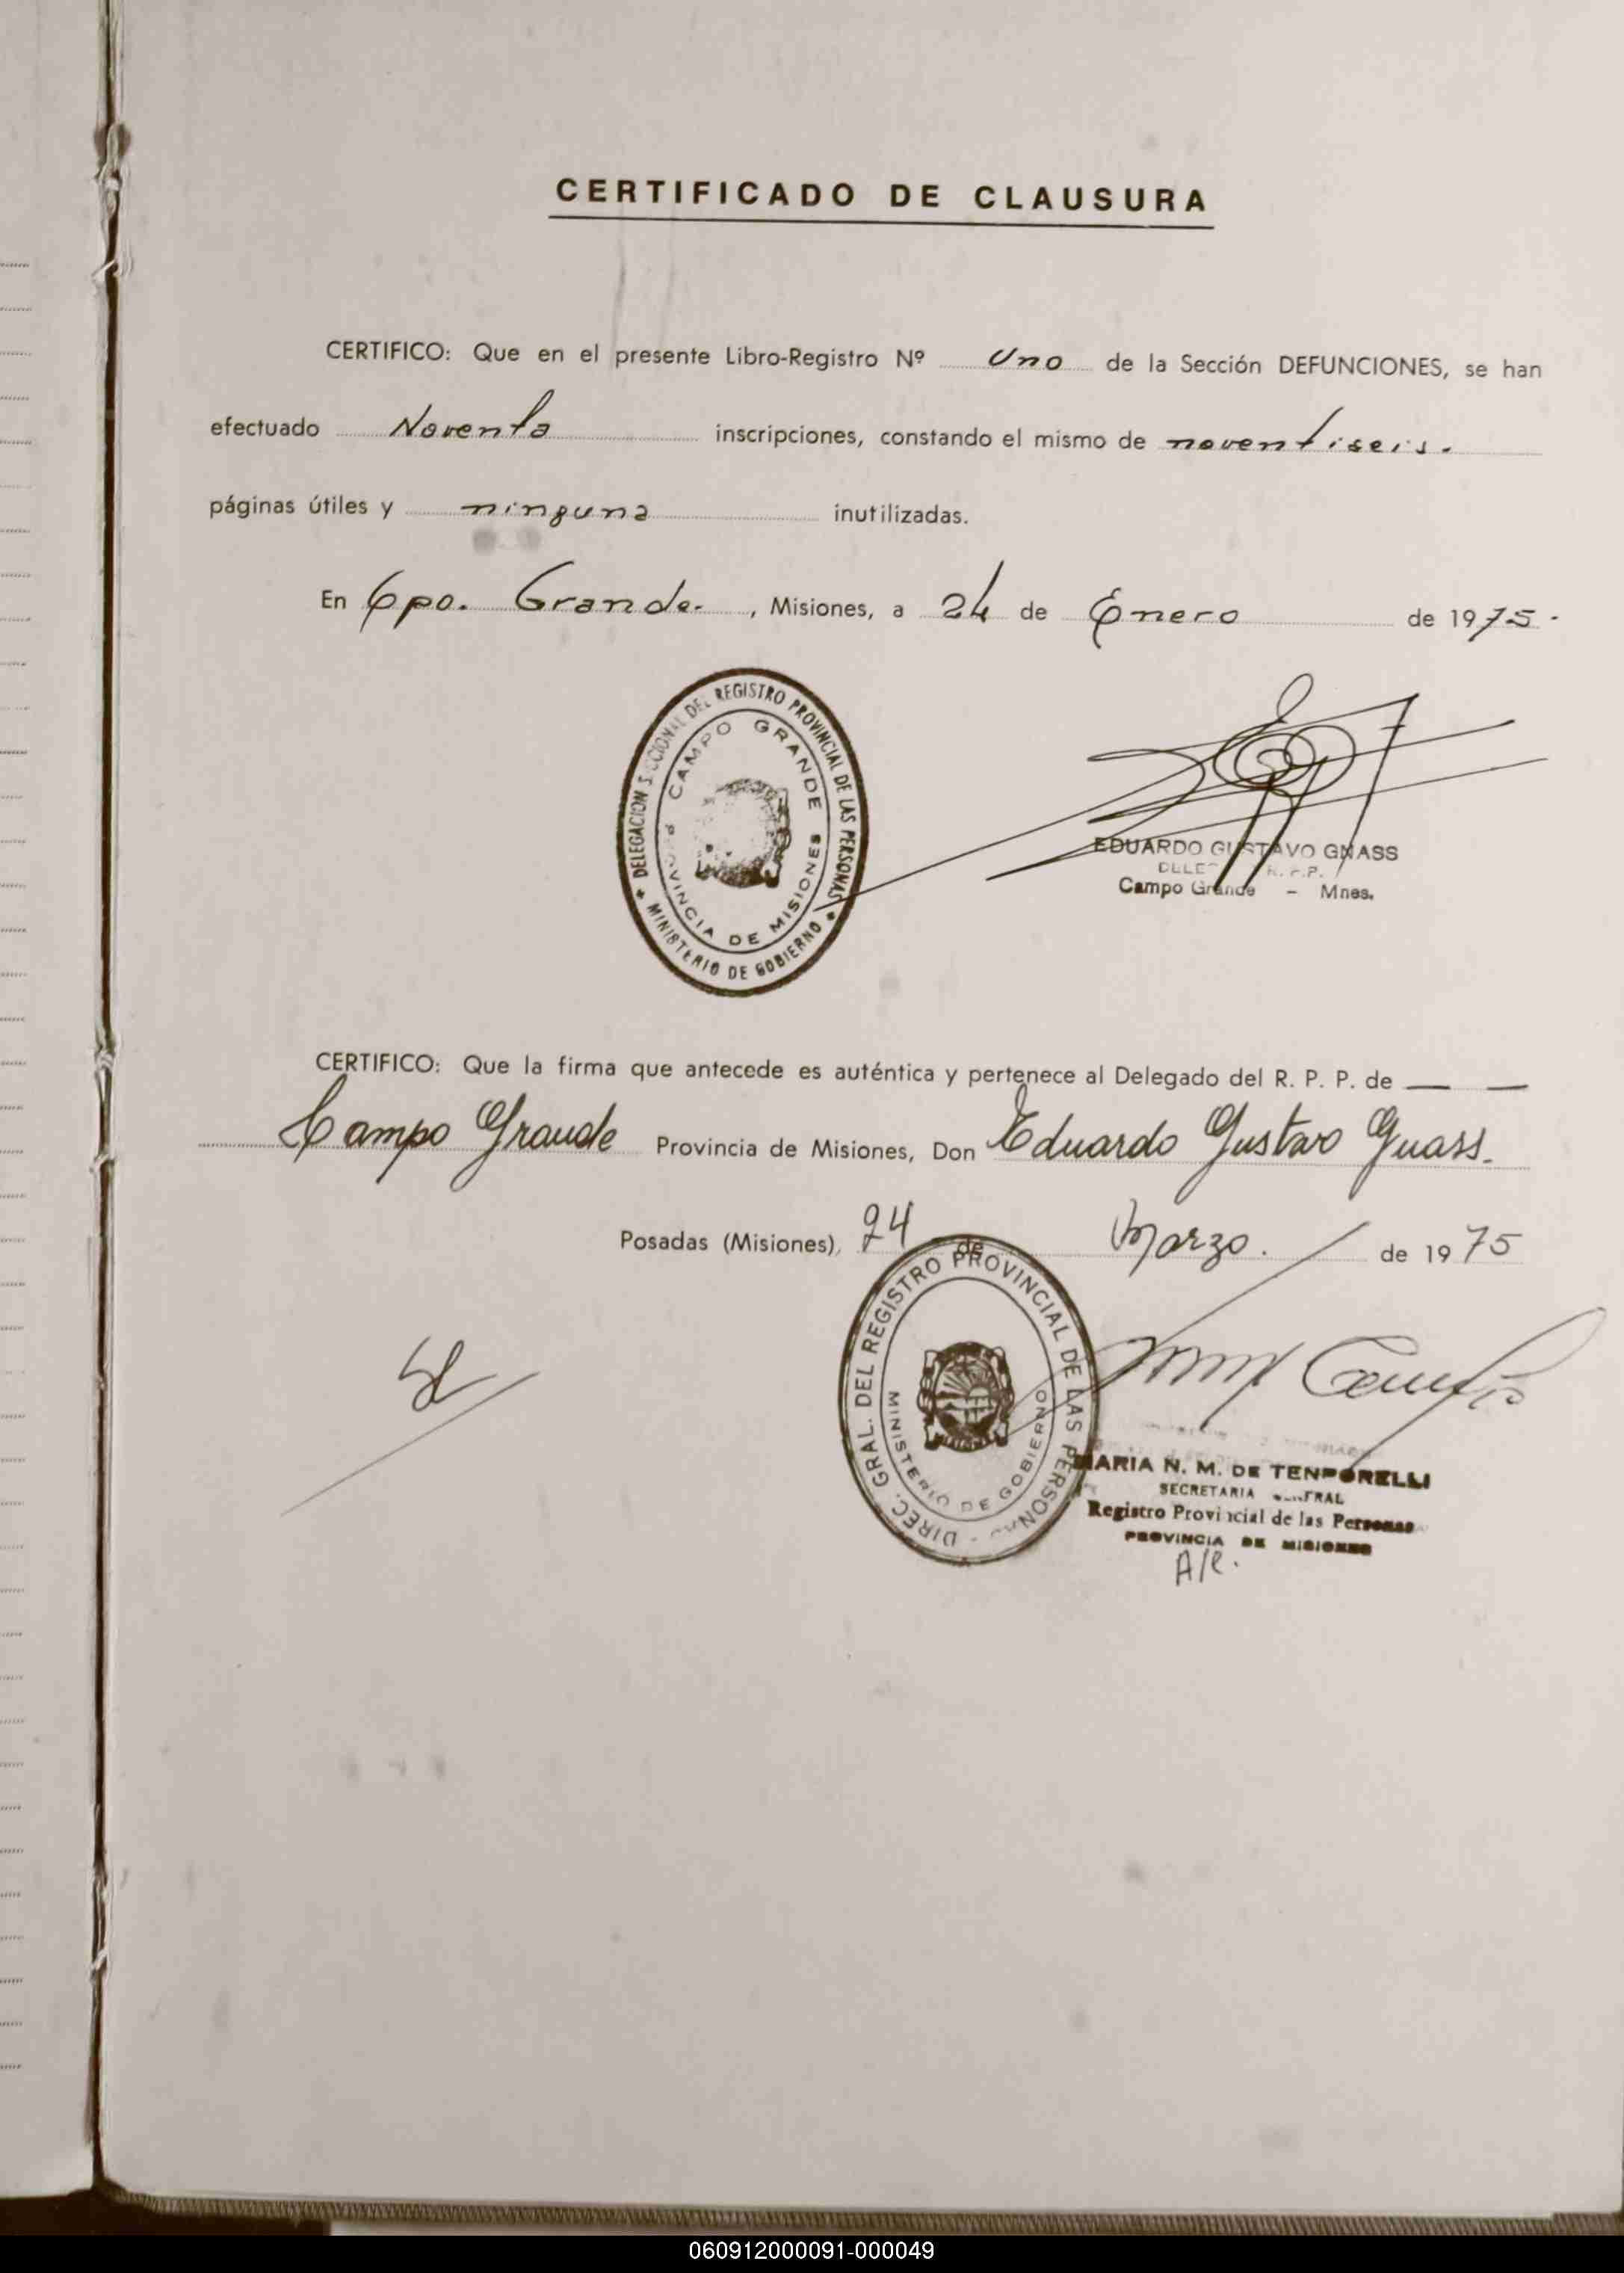 CERTIFICADO DE CLAUSURA
CERTIFICO: Que en el presente Libro-Registro Nº Uno de la Sección DEFUNCIONES, se han
efectuado Noventa inscripciones, constando el mismo de noventiseis.
páginas útiles y ninguna inutilizadas.
En Cpo. Grande. , Misiones, a 24 de Enero de 1975.
DELEGACION SECCIONAL DEL REGISTRO PROVINCIAL DE LAS PERSONAS
MINISTERIO DE GOBIERNO
CAMPO GRANDE
PROVINCIA DE MISIONES
EDUARDO GUSTAVO GNASS
Campo Grande - Mnes.
CERTIFICO: Que la firma que antecede es auténtica y pertenece al Delegado del R. P. P. de
Campo Grande Provincia de Misiones, Don Eduardo Gustavo Gnass.
Posadas (Misiones), 24 de Marzo. de 1975
DIREC. GRAL. DEL REGISTRO PROVINCIAL DE LAS PERSONAS
MINISTERIO DE GOBIERNO
MARIA N. M. DE TENPORELLI
SECRETARIA GENERAL
Registro Provincial de las Personas
PROVINCIA DE MISIONES
A/R.
060912000091-000049